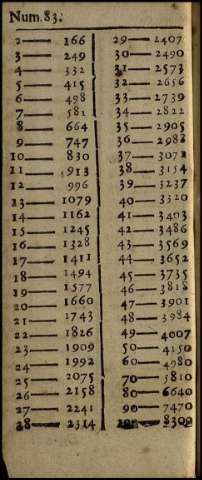 Num.83.
2— 166
3— 249
4— 332
5— 415
6— 498
7— 581
8— 664
9— 747
10— 830
11— 913
12— 996
13— 1079
14— 1162
15— 1245
16— 1328
17— 1411
18— 1494
19— 1577
20— 1660
21— 1743
22— 1826
23— 1909
24— 1992
25— 2075
26— 2158
27— 2241
28— 2314
29— 2407
30— 2490
31— 2573
32— 2656
33— 2739
34— 2822
35— 2905
36— 2988
37— 3071
38— 3154
39— 3237
40— 3320
41— 3403
42— 3486
43— 3569
44— 3652
45— 3735
46— 3818
47— 3901
48— 3984
49— 4007
50— 4150
60— 4980
70— 5810
80— 6640
90— 7470
100— 8300